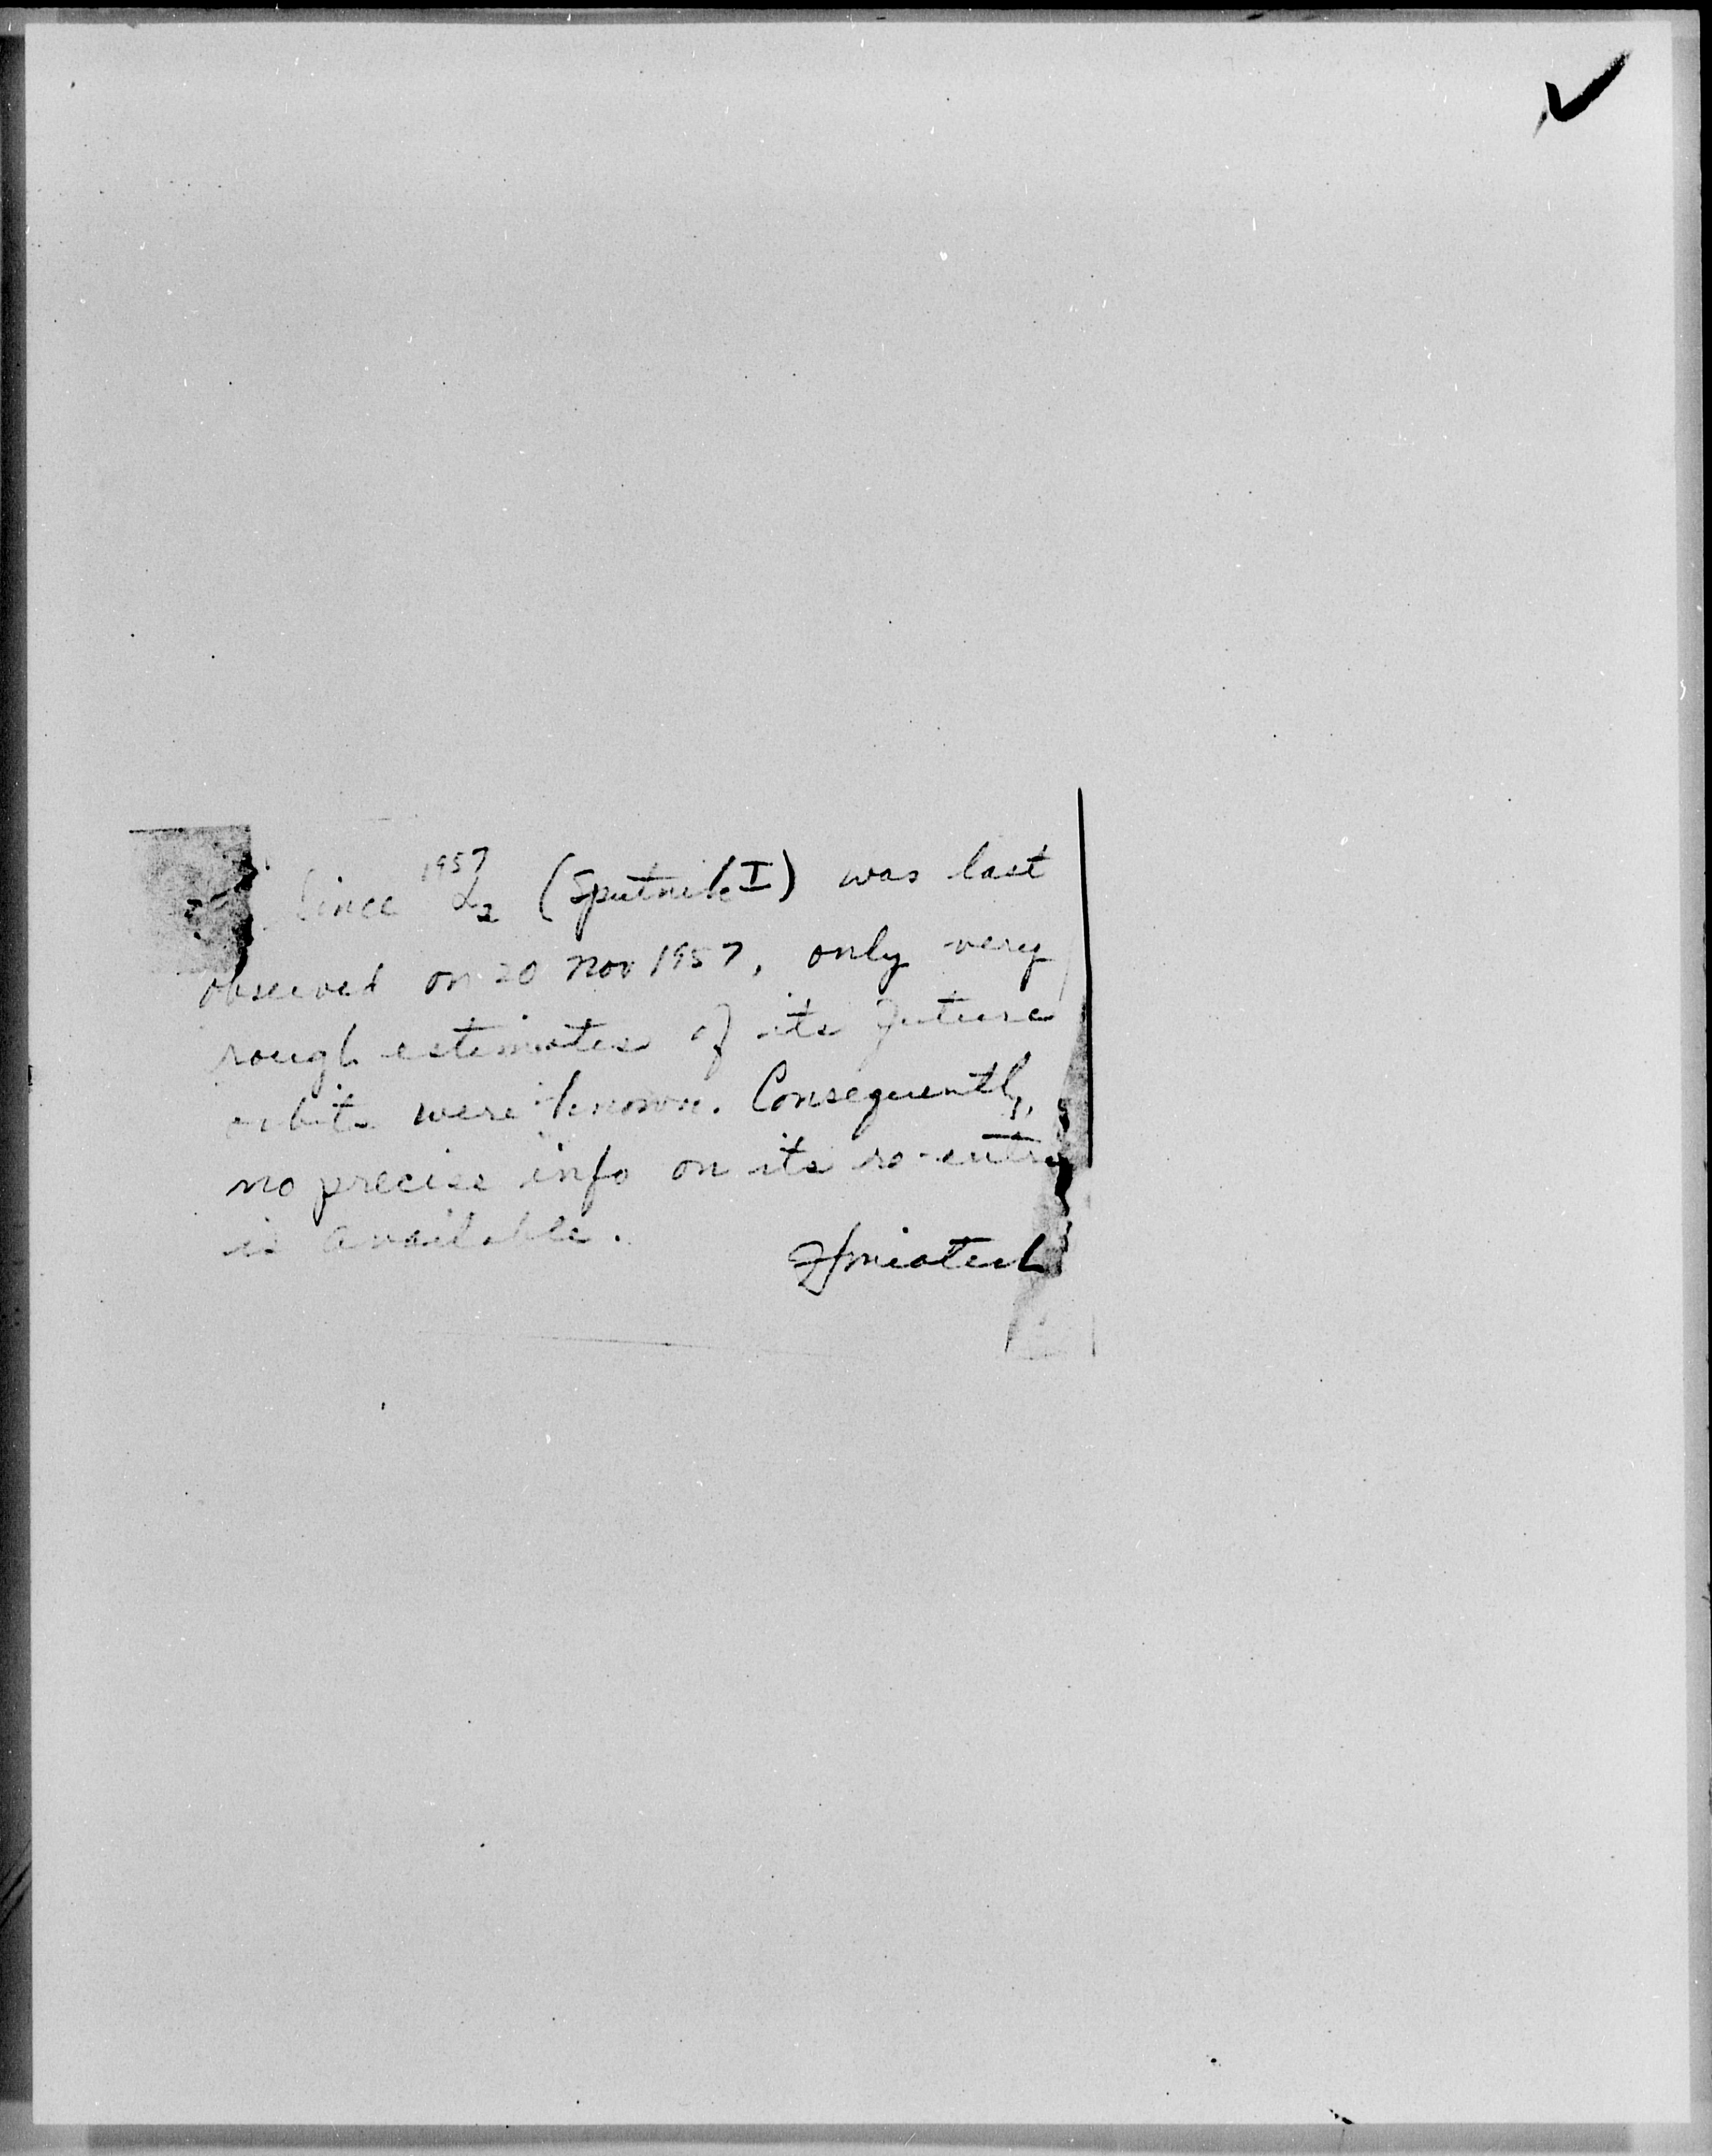 Since 1957 α2 (Sputnik I) was last
observed on 20 Nov 1957, only very
rough estimates of its future
orbits were known. Consequently,
no precise info on its re-entry
is available.